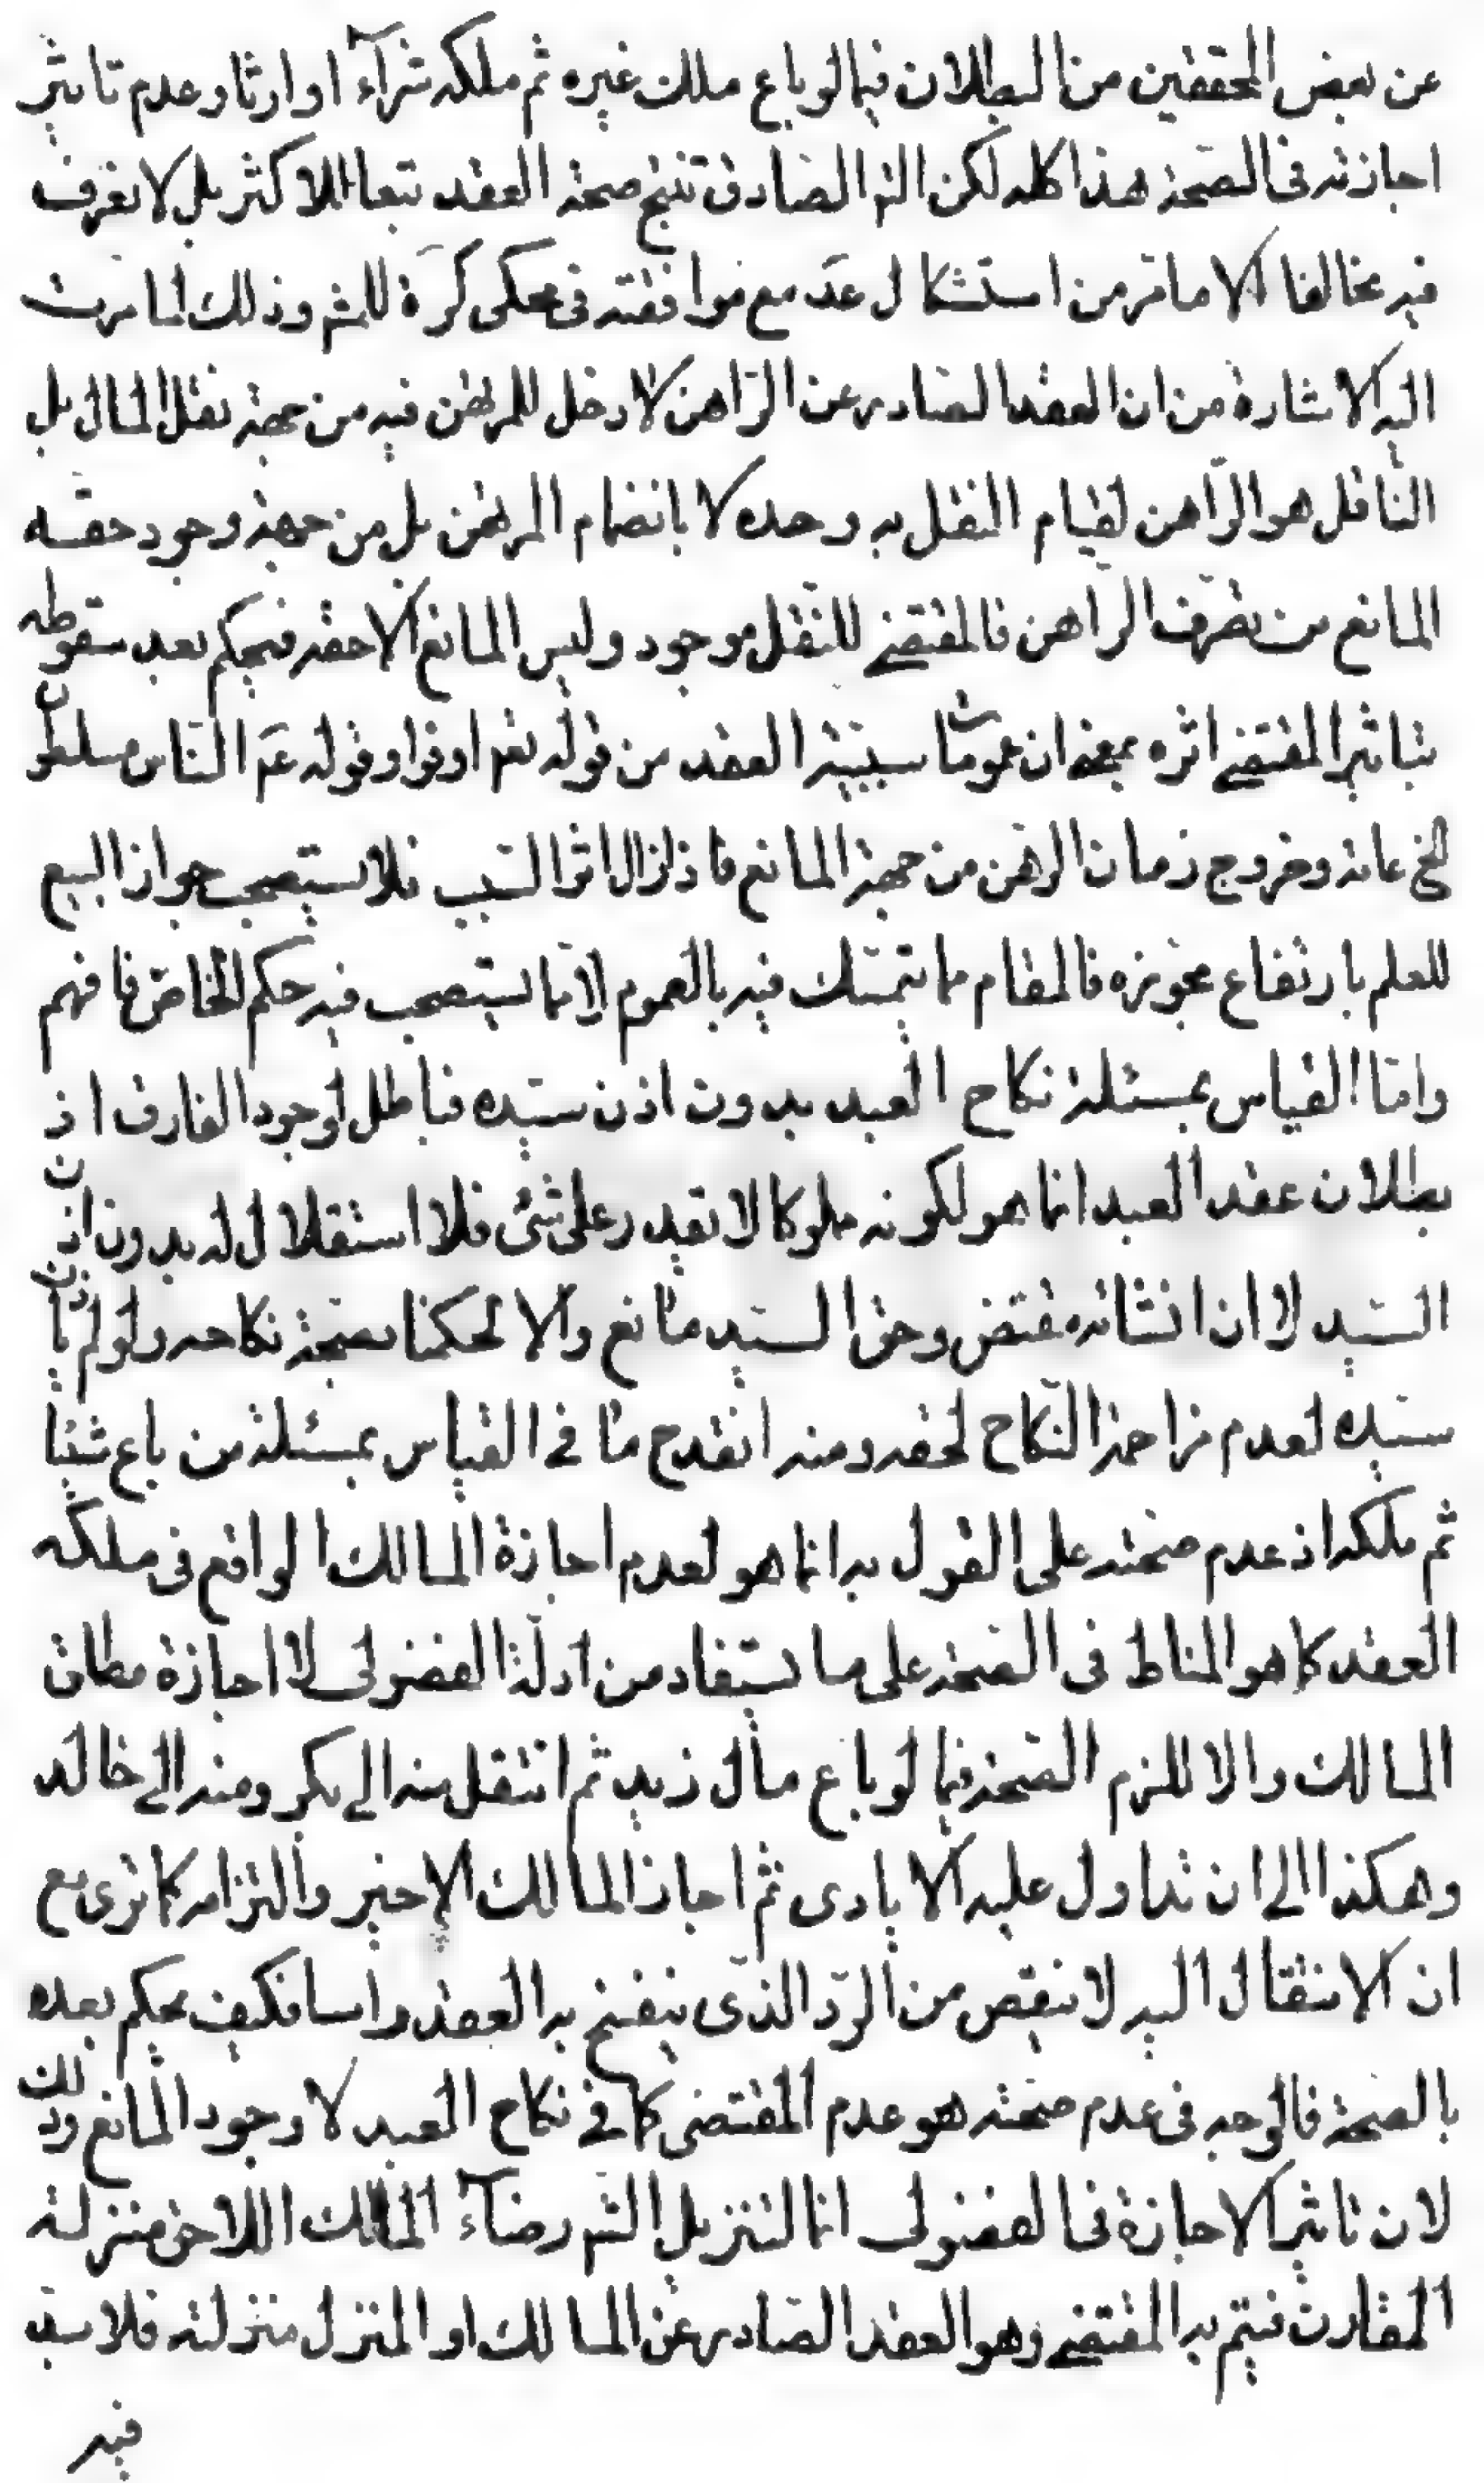 عن بعض المحققين من البطلان فيما لو باع ملك غيره ثم ملكه شرآء او ارثا وعدم تاثير
اجازته فى الصحة هذا كله لكن النظر الصادق تنتج صحة العقد تبعا للاكثر بل لا نعرف
فيه مخالفا الا ما مر من استشكال عد مع موافقته فى محكى كره للمشهور وذلك لما مرت
اليه الاشارة من ان العقد الصادر عن الراهن لا دخل للمرتهن فيه من جهة نقل المال بل
الناقل هو الراهن لقيام النقل به وحده لا بانضمام المرتهن بل من جهة وجود حقه
المانع من تصرف الراهن فالمقتضے للنقل موجود وليس المانع الا حقه فيحكم بعد سقوطه
بتاثير المقتضے اثره بمعنے ان عمومات سببية العقد من قوله تعم اوفوا وقوله عم الناس مسلطون
الخ عامة وخروج زمان الرهن من جهة المانع فاذا زال اثر السبب فلا يستصحب جواز البيع
للعلم بارتفاع مجوزه فالمقام مما يتمسك فيه بالعموم لا مما يستصحب فيه حكم الخاص فافهم
واما القياس بمسئلة نكاح العبد بدون اذن سيده فباطل لوجود الفارق اذ
بطلان عقد العبد انما هو لكونه مملوكا لا يقدر على شئ فلا استقلال له بدون اذن
السيد لا ان انشائه مقتض وحق السيد مانع والا لحكمنا بصحة نكاحه ولو لم ياذن
سيده لعدم مزاحمة النكاح لحقه ومنه انقدح ما فے القياس بمسئلة من باع شيئا
ثم ملكه اذ عدم صحته على القول به انما هو لعدم اجازة المالك الواقع فى ملكه
العقد كما هو المناط فى الصحة على ما يستفاد من ادلة الفضولى لا اجازة مطلق
المالك والا للزم الصحة فيما لو باع مال زيد ثم انتقل منه الى بكر ومنه الے خالد
وهكذا الے ان تداول عليه الايادى ثم اجاز المالك الاخير والتزامه كما ترى مع
ان الانتقال اليه لا ينقص من الرد الذى ينفسخ به العقد راسا فكيف يحكم بعده
بالصحة فالوجه فى عدم صحته هو عدم المقتضى كما فے نكاح العبد لا وجود المانع وذلك
لان تاثير الاجازة فى الفضولى انما لتنزيل الشم رضآء المالك اللاحق منزلة
المقارن فيتم به المقتضے وهو العقد الصادر عن المالك او المنزل منزلته فلا بد
فيه